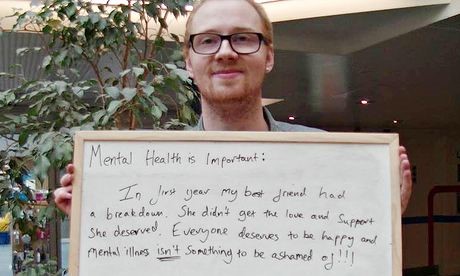 Mental Health is Important:
In first year my best friend had
a breakdown. She didn't get the love and support
she deserved. Everyone deserves to be happy and
mental illness isn't something to be ashamed of!!!